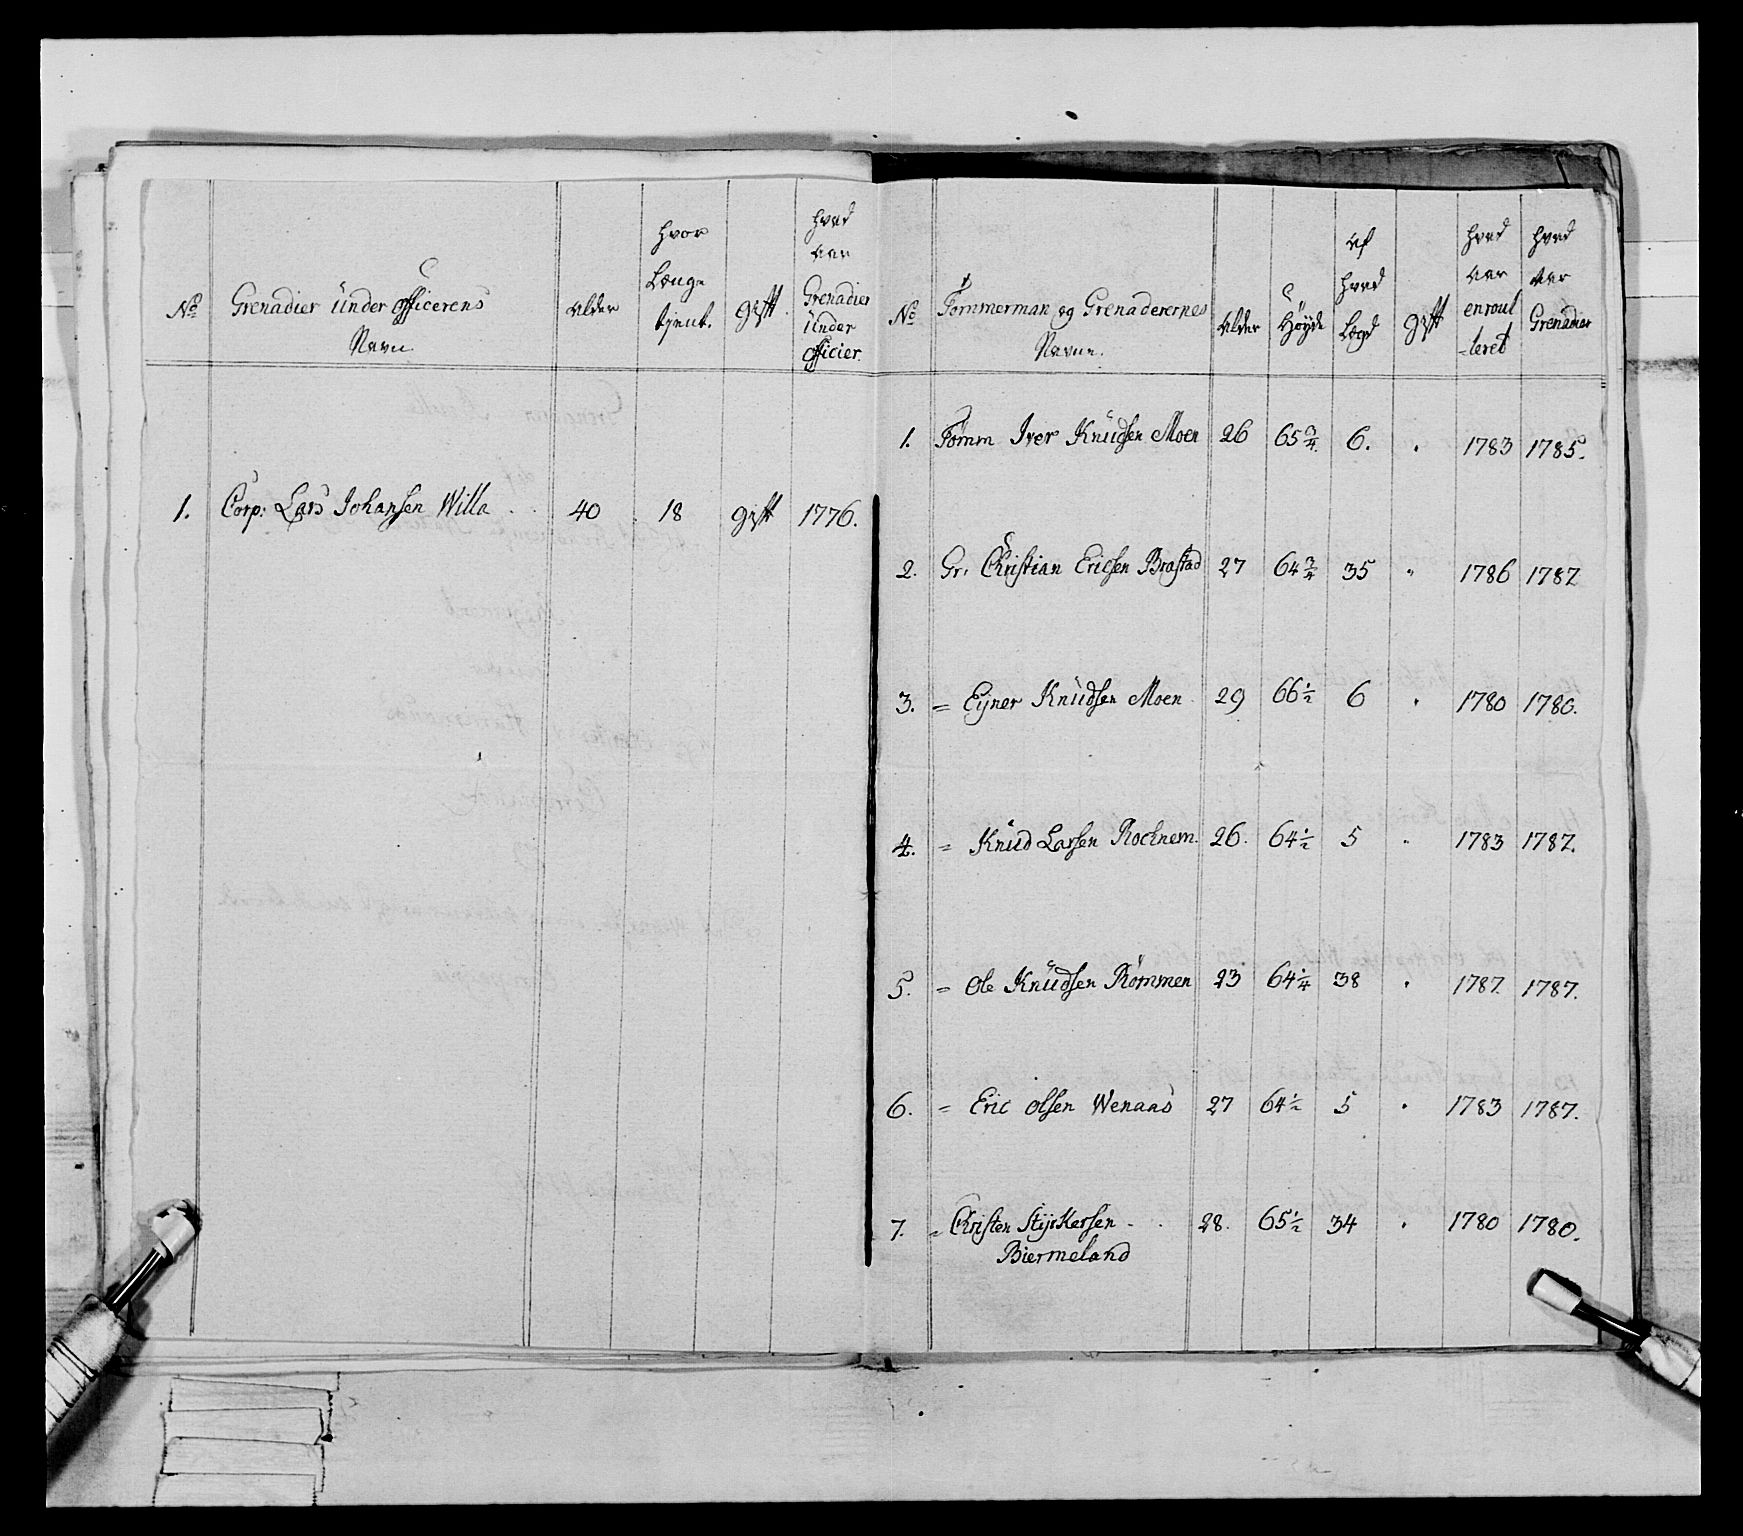 No
Grenadier Under Officerens
Navn
alder
hvor
Længe
tient.
gift
hvad
aar
Grenadier
Under
officier.
1.
Corp: Lars Johansen Willa
40
18
gift
1776.
No
Tømmerman og Grenaderernes
Navne.
alder
Høyde
af
hvad
Lægd
gift
hvad
aar
enroul
-leret
hvad
aar
Grenadier
1. Tømm Iver Knudsen Moen 26 65 3/4. 6. " 1783 1785.
2. Gr: Christian Ericsen Brastad 27 64 3/4 35 " 1786 1787
3. = Eyner Knudsen Moen 29 66 1/2 6 " 1780 1780.
4. = Knud Larsen Rochnem. 26. 64 1/2 5 " 1783 1787.
5. = Ole Knudsen Rømmen 23 64 1/4 38 " 1787. 1787.
6. = Eric Olsen Wenaas 27 64 1/2 5 " 1783 1787.
7. = Christen Styrkersen - . 28. 65 1/2 34 " 1780 1780.
Biermeland